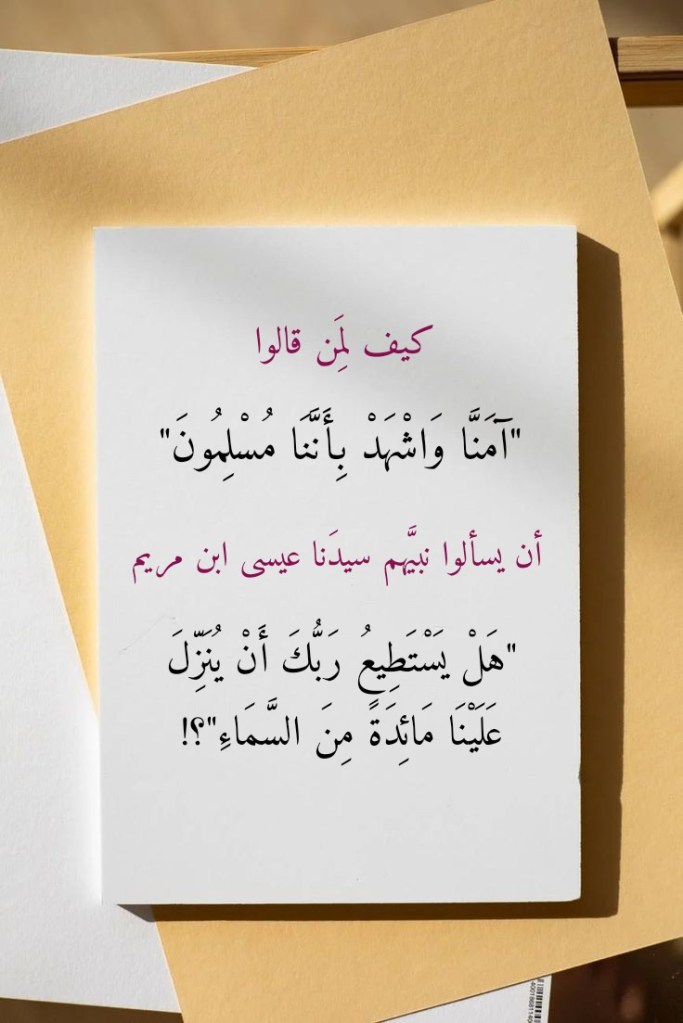 كيف لِمَن قالوا
"آمَنَّا وَاشْهَدْ بِأَنَّنَا مُسْلِمُونَ"
أن يسألوا نبيَّهم سيدَنا عيسى ابن مريم
"هَلْ يَسْتَطِيعُ رَبُّكَ أَنْ يُنَزِّلَ
عَلَيْنَا مَائِدَةً مِنَ السَّمَاءِ"؟!